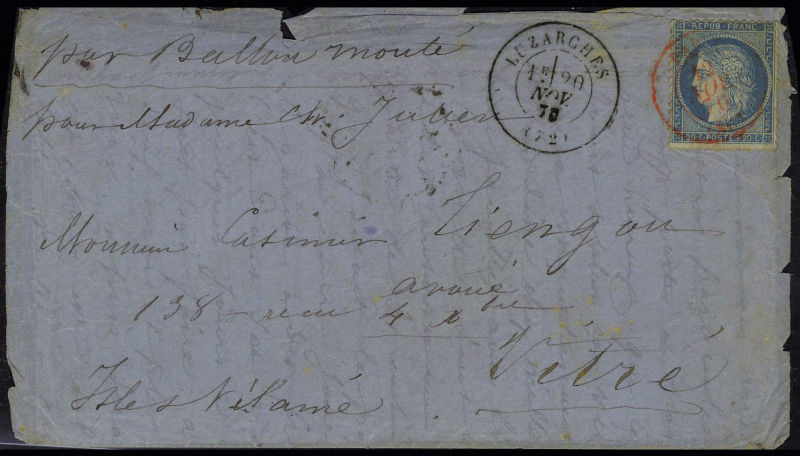 par Ballon monté
pour Madame Ch. Julien
LUZARCHES
1E/20
NOV.
70
(72)
REPUB. FRANC.
20.C POSTES 20.C
Monsieur Casimir
avoué
138 -
4 xbre
Vitré
Isle et Vilaine